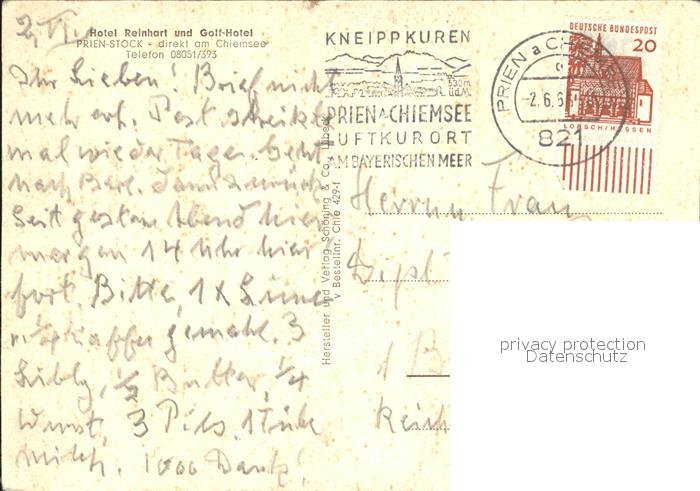 2.VI.
Hotel Reinhart und Golf-Hotel
PRIEN-STOCK - direkt am Chiemsee
Telefon 08051/593
Ihr Lieben! Brief nicht
mehr erh. Post streikte
mal wieder Tage. Geht
nach Berl. dann zurück
Seit gestern Abend hier
morgen 14 Uhr hier
fort. Bitte, 1 x
gemahl. 3
Libby, 1/2 Butter, 1/4
Wurst, 3 Pils, 1 Tube
milch. 1000 Dank!
Hersteller und Verlag Schöning & Co., Lübeck
V Bestellnr. Chie 429-f
KNEIPPKUREN
532m
ü.d.M.
PRIEN A. CHIEMSEE
LUFTKURORT
AM BAYERISCHEN MEER
PRIEN a CHIEMSEE
-2.6.6
821
DEUTSCHE BUNDESPOST
20
LORSCH/HESSEN
Herrn Frau
Dipl
1 B
Reich
privacy protection
Datenschutz